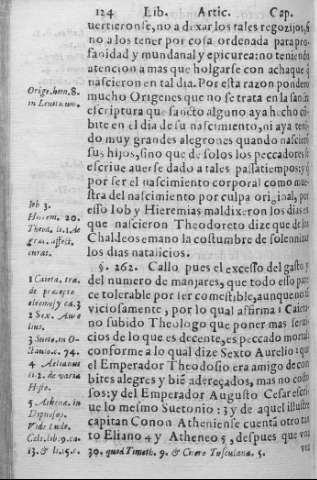 124 Lib. Artic. Cap.
uertieronse, no a dexar los tales regozijos, si
no a los tener por cosa ordenada para pro
fanidad y mundanal y epicurea: no teniendo
atencion a mas que holgarse con achaque q
nascieron en tal dia. Por esta razon pondera
mucho Origenes que no se trata en la sancta
escriptura que sancto alguno aya hecho co
bite en el dia de su nascimiento, ni aya teni
do muy grandes alegrones quando nascieron
sus hijos, sino que de solos los peccadores se
escriue auerse dado a tales passatiempos: y
por ser el nascimiento corporal como mue
stra del nascimiento por culpa original, por
esso Iob y Hieremias maldixeron los dias en
que nascieron Theodoreto dize que de los
Chaldeos emano la costumbre de solennizar
los dias natalicios.
§. 262. Callo pues el excesso del gasto y
del numero de manjares, que todo esso pare
ce tolerable por ser comestible, aunque no
viciosamente, por lo qual affirma 1 Caieta
no subido Theologo que poner mas serui
cios de lo que es decente, es peccado mortal
conforme a lo qual dize Sexto Aurelio 2 que
el Emperador Theodosio era amigo de con
bites alegres y bié adereçados, mas no costo
sos: y del Emperador Augusto Cesar escri
ue lo mesmo Suetonio: 3 y de aquel illustre
capitan Conon Atheniense cuenta otro tan
to Eliano 4 y Atheneo 5, despues que
Orige. hom. 8.
in Leuiticum.
Iob 3.
Hierem. 20.
Theod. li. 1. de
grac. affect.
curat.
1 Caieta. tra.
de præcepto
eleemos. ca. 3
2 Sex. Aure
lius.
3 Sueto. in O-
ctauio. c. 74.
4 Aelianus
li. 2. de varia
Histo.
5 Athenæ. in
Dipnosop.
Vide Ludo.
Cels. lib. 9. ca.
13. & li. 15. c.
30. quod Timoth. 9. & Cicero Tusculana. 5.